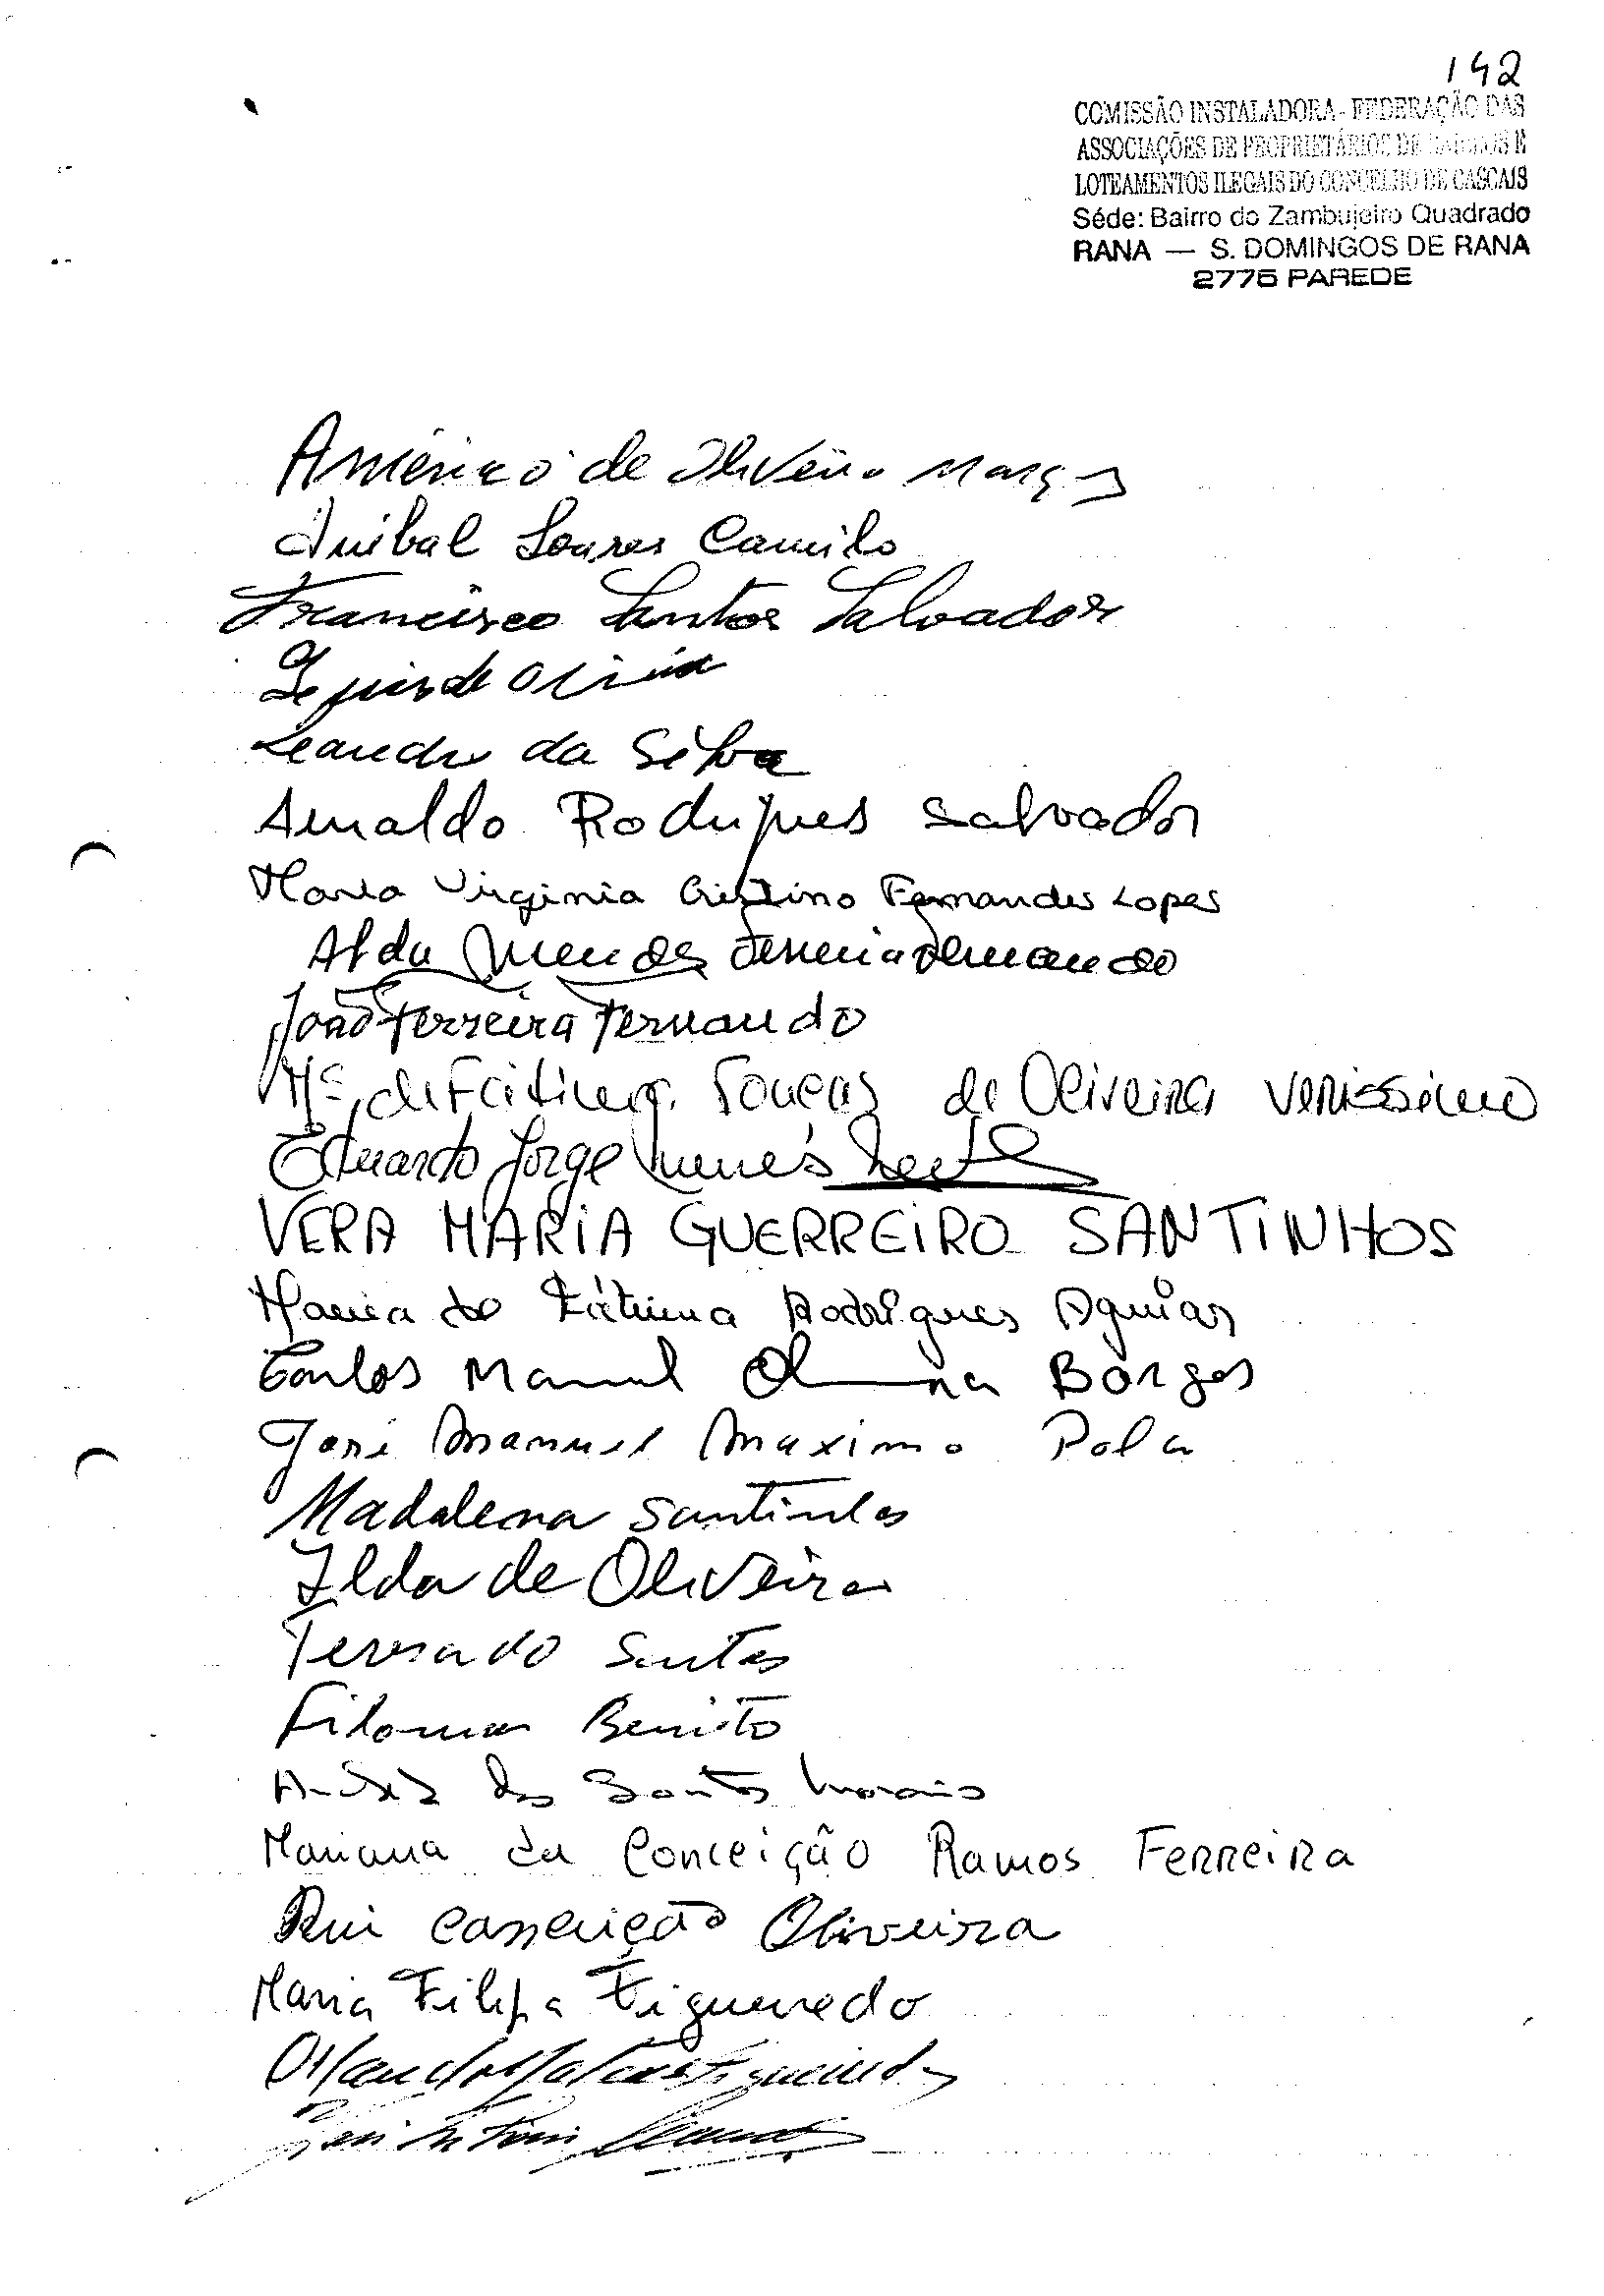 142
COMISSÃO INSTALADORA - FEDERAÇÃO DAS
ASSOCIAÇÕES DE PROPRIETÁRIOS DE BAIRROS E
LOTEAMENTOS ILEGAIS DO CONCELHO DE CASCAIS
Séde: Bairro do Zambujeiro Quadrado
RANA — S. DOMINGOS DE RANA
2775 PAREDE
Américo de Oliveira Marques
Anibal Soares Camilo
Francisco Santos Salvador
de
Leandro da Silva
Arnaldo Rodrigues Salvador
Maria Virginia Cristino Fernandes Lopes
Alda Mendes Ferreira Fernando
João Ferreira Fernando
Mª de Fátima de Oliveira Verissimo
Eduardo Jorge Nunes
VERA MARIA GUERREIRO SANTINHOS
Maria de Fátima Rodrigues Aguiar
Carlos Manuel Borges
José Manuel Maximo Pola
Madalena Santinhos
Ilda de Oliveira
Fernando Santos
Filomena Benito
dos Santos Morais
Mariana da Conceição Ramos Ferreira
Rui Conceição Oliveira
Maria Filipa Figueiredo
Orlando Figueiredo